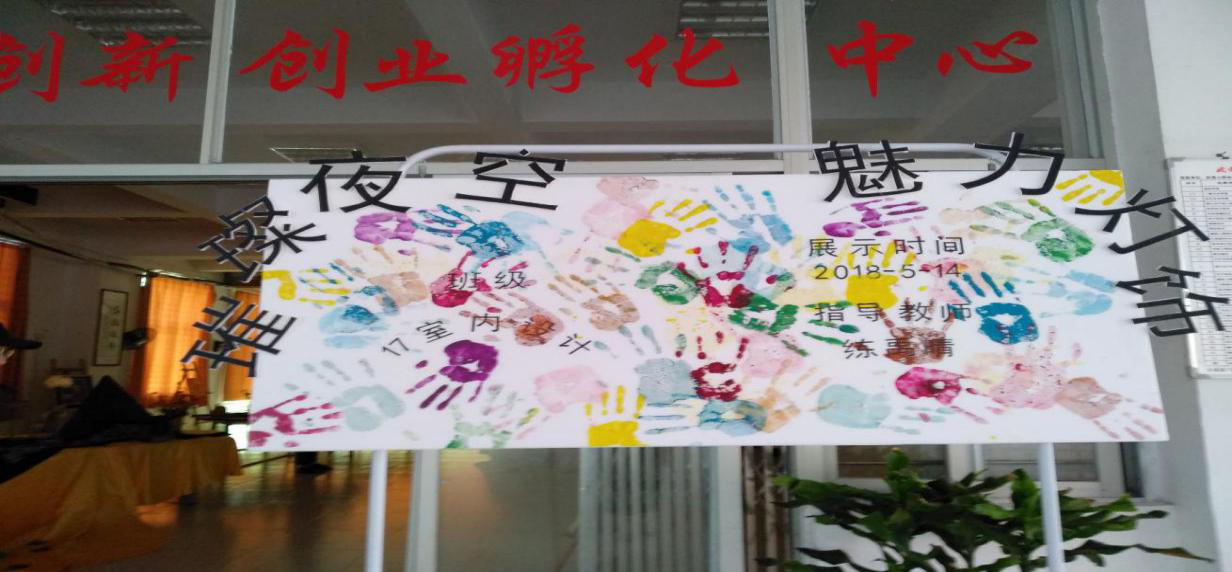 创新 创业孵化 中心
璀璨夜空 魅力灯饰
班级
17室内设计
展示时间
2018-5-14
指导教师
练